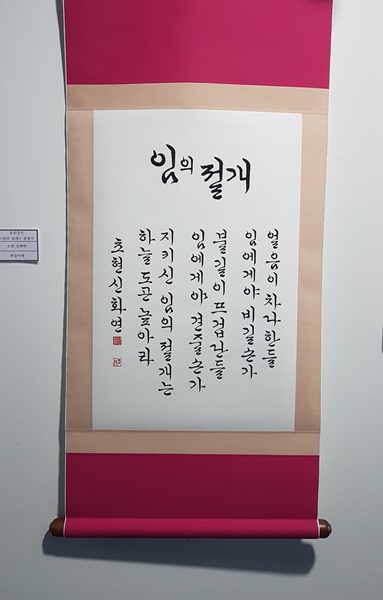 임의 절개
얼음이 차다한들
임에게야 비길손가
불길이 뜨겁단들
임에게야 견줄손가
지키신 임의 절개는
하늘도곤 높아라
초현 신화연